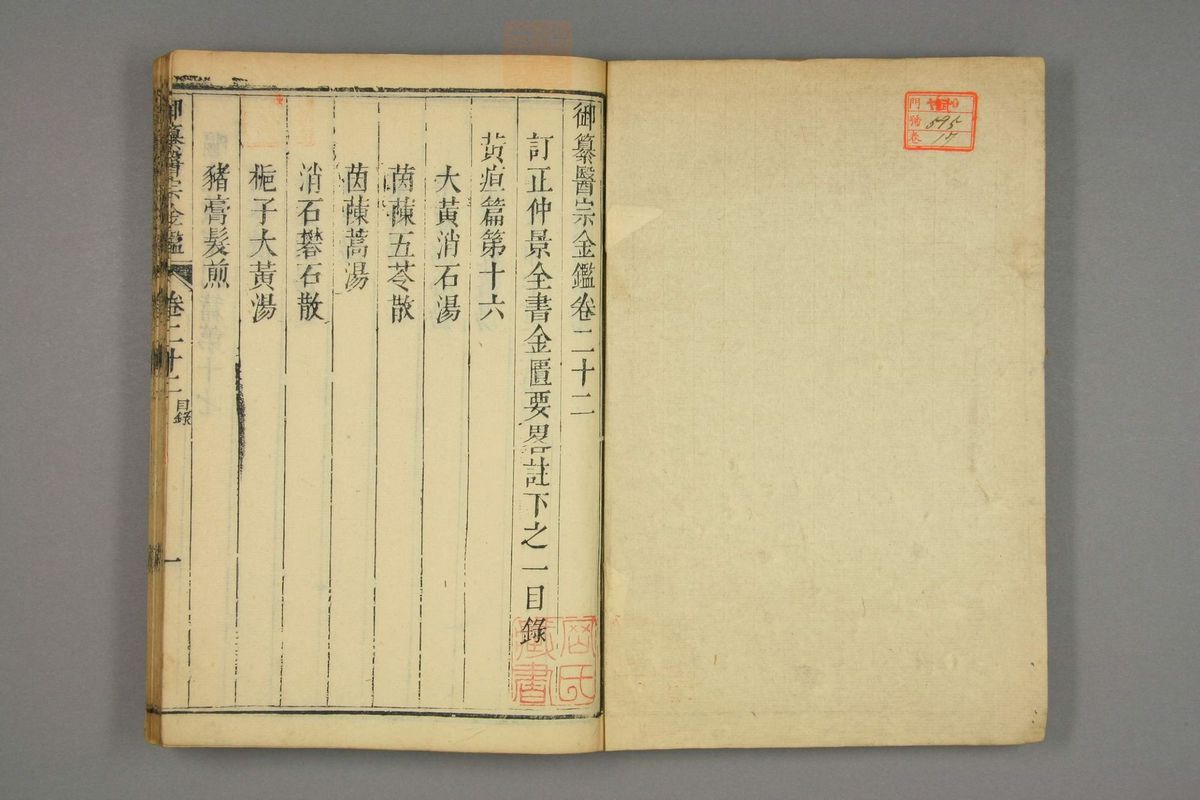 御纂醫宗金鑑卷二十二
訂正仲景全書金匱要畧註下之一目錄
黃疸篇第十六
大黃消石湯
茵蔯五苓散
茵蔯蒿湯
消石礬石散
梔子大黃湯
豬膏髮煎
御纂醫宗金鑑 卷二十二 目錄 一
門
號 595
卷 17